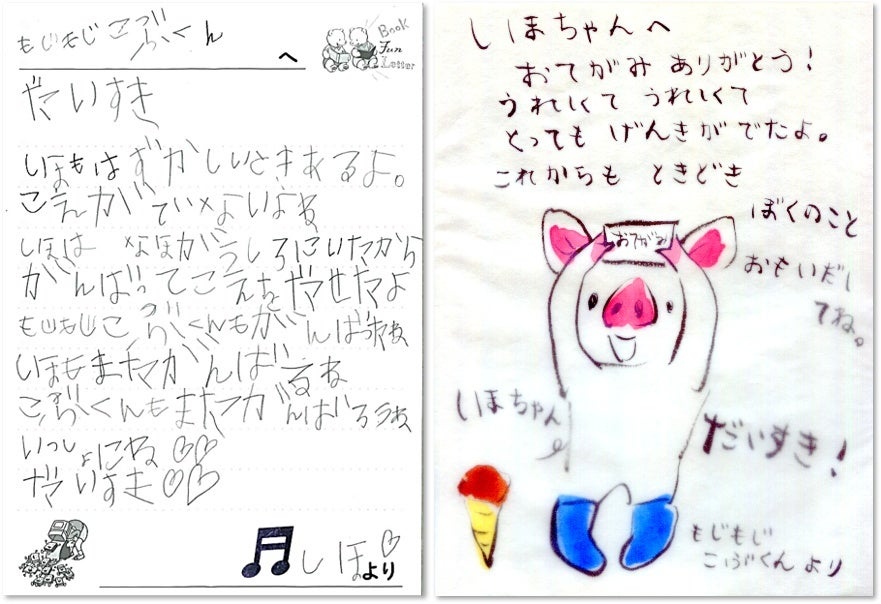 もじもじこぶくん
へ
Book
Fun
Letter
だいすき
しほもはずかしいときあるよ。
こえがでないよね
しほは なほがうしろにいたから
がんばってこえをだせたよ
もじもじこぶくんもがんばったね
しほもまたがんばるね
こぶくんもまたがんばろうね
いっしょにね♡♡
だいすき♡♡
しほ♡より
しほちゃんへ
おてがみ ありがとう!
うれしくて うれしくて
とっても げんきがでたよ。
これからも ときどき
ぼくのこと
おもいだし
てね。
おてがみ
しほちゃん
だいすき!
もじもじ
こぶくん より